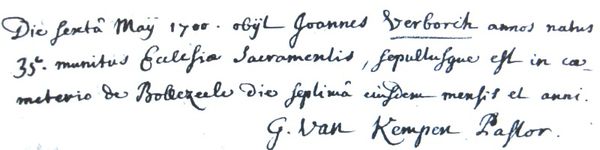 Die sextâ Maÿ 1700. obÿt Joannes Verborch annos natus
35e. munitus Ecclesiæ Sacramentis, sepultusque est in cœ-
meterio de Bollezeele die septimâ eiusdem mensis et anni.
G. Van Kempen Pastor.